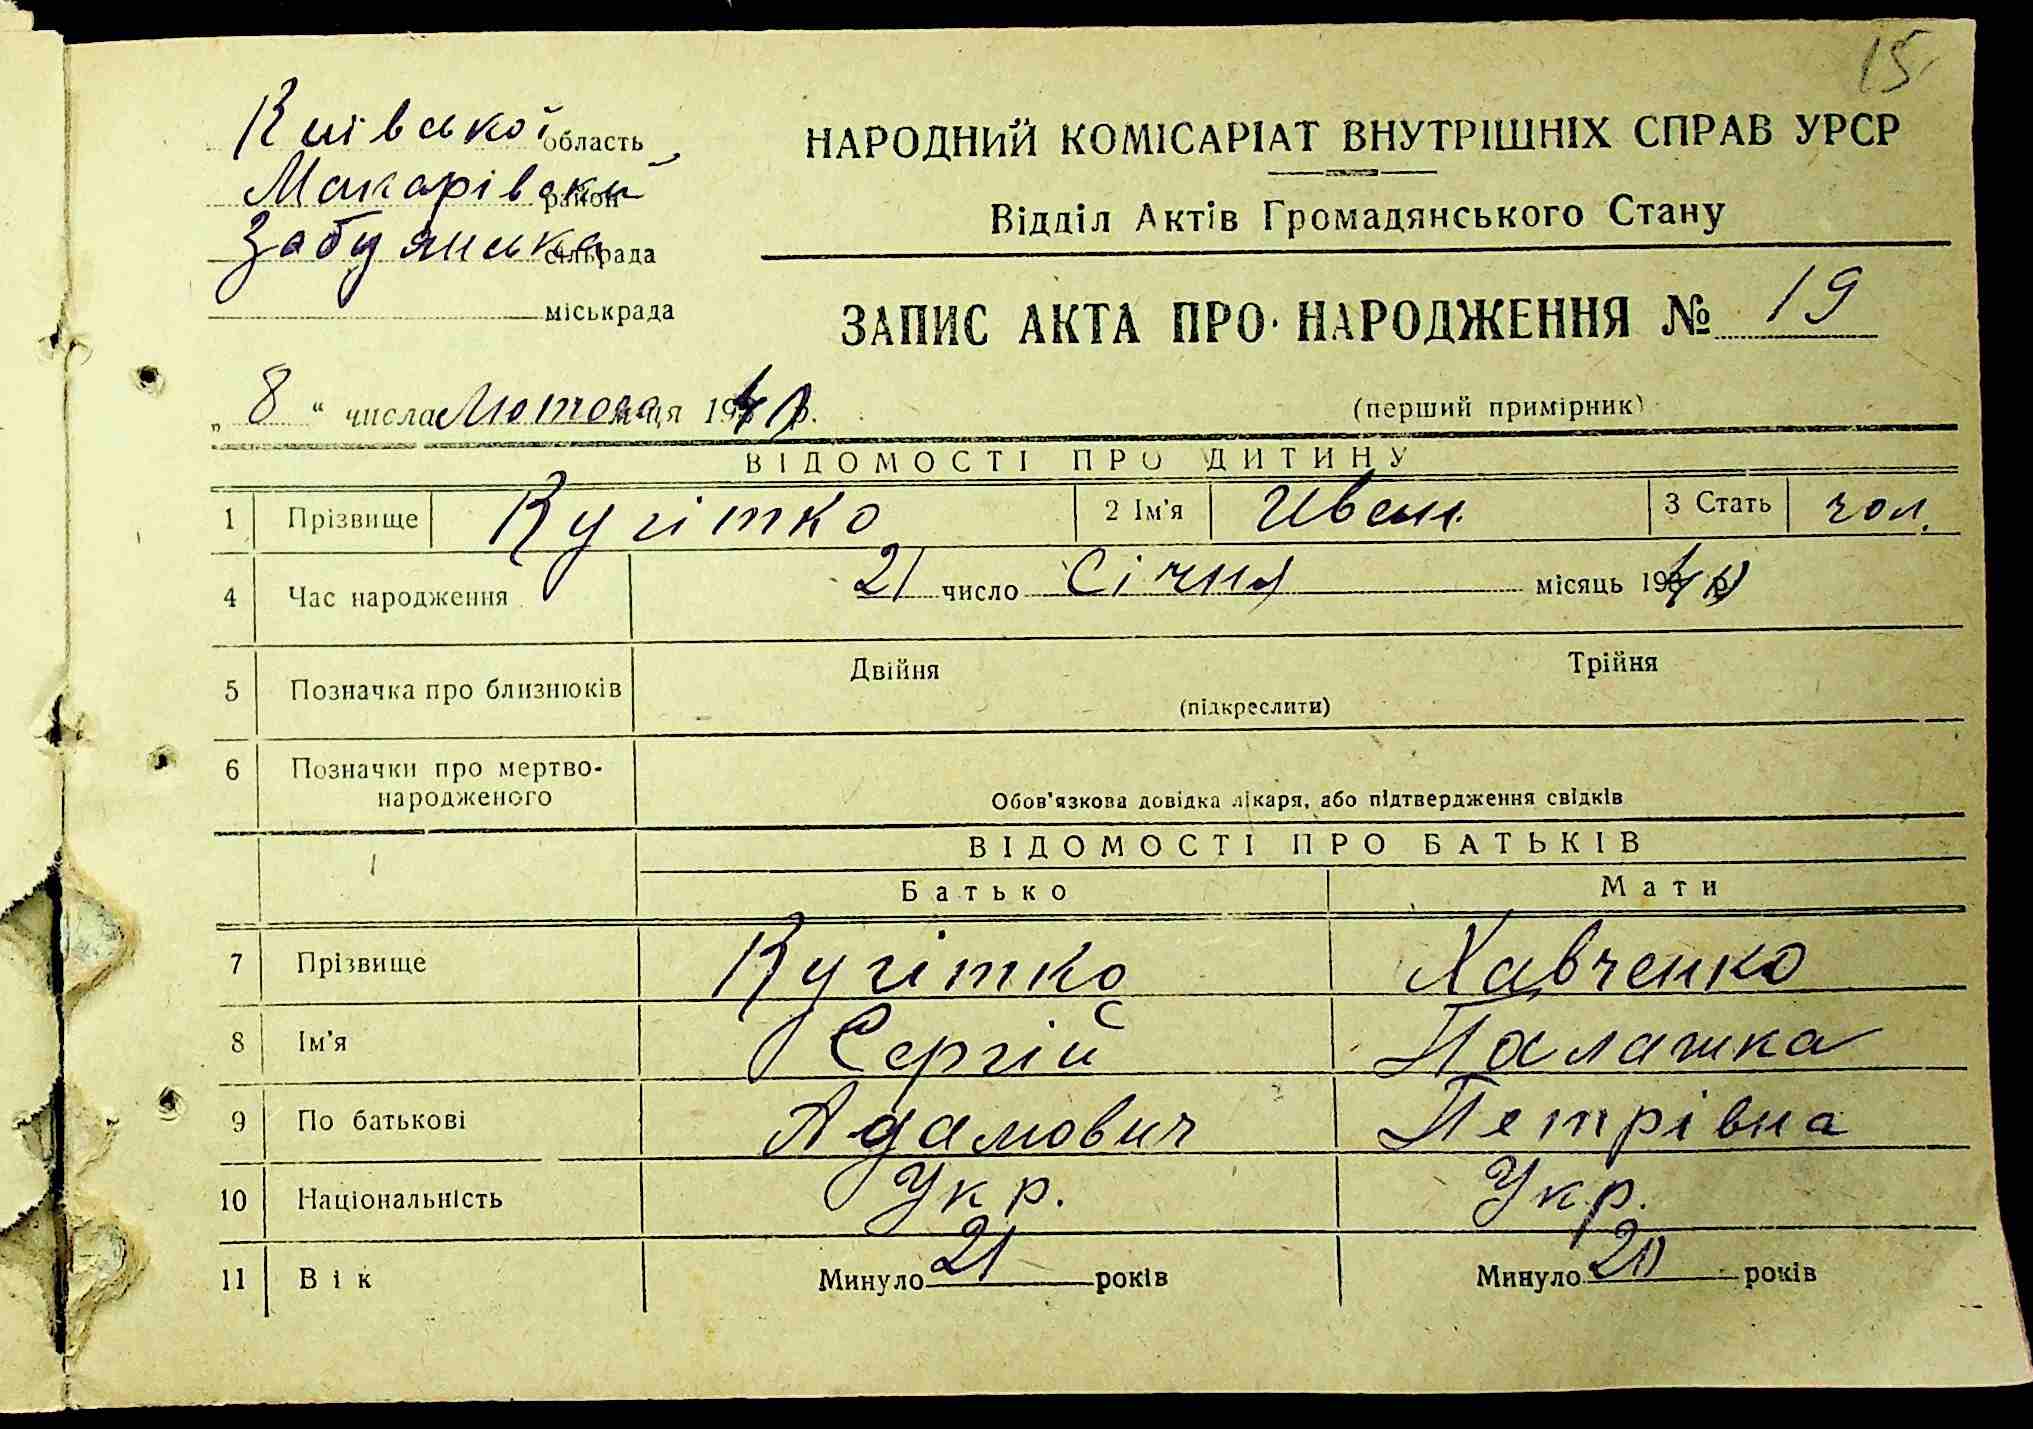 15
Київської область
Макарівський район
Забуянська сільрада
міськрада
НАРОДНИЙ КОМІСАРІАТ ВНУТРІШНІХ СПРАВ УРСР
Відділ Актів Громадянського Стану
ЗАПИС АКТА ПРО НАРОДЖЕННЯ № 19
„ 8 “ числа Лютого м-ця 1940 р.
(перший примірник)
ВІДОМОСТІ ПРО ДИТИНУ
1 Прізвище Кугітко 2 Ім'я Ивен 3 Стать чол.
4 Час народження 21 число Січня місяць 1940 р.
5 Позначка про близнюків Двійня Трійня
(підкреслити)
6 Позначки про мертво-
народженого
Обов'язкова довідка лікаря, або підтвердження свідків
ВІДОМОСТІ ПРО БАТЬКІВ
Батько Мати
7 Прізвище Кугітко Хавченко
8 Ім'я Сергій Палашка
9 По батькові Адамович Петрівна
10 Національність Укр. Укр.
11 Вік Минуло 21 років Минуло 20 років